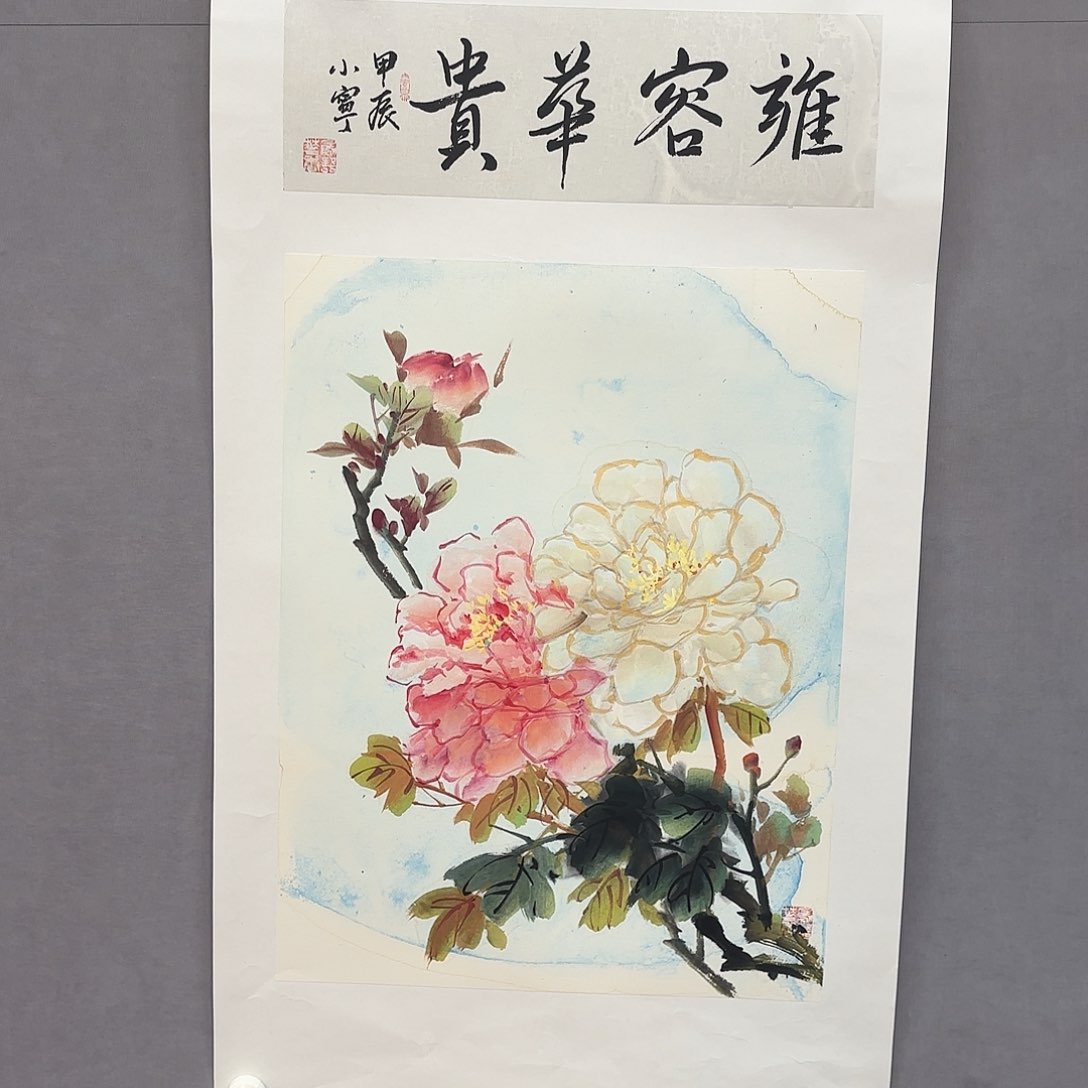 雍容華貴
甲辰
小寧